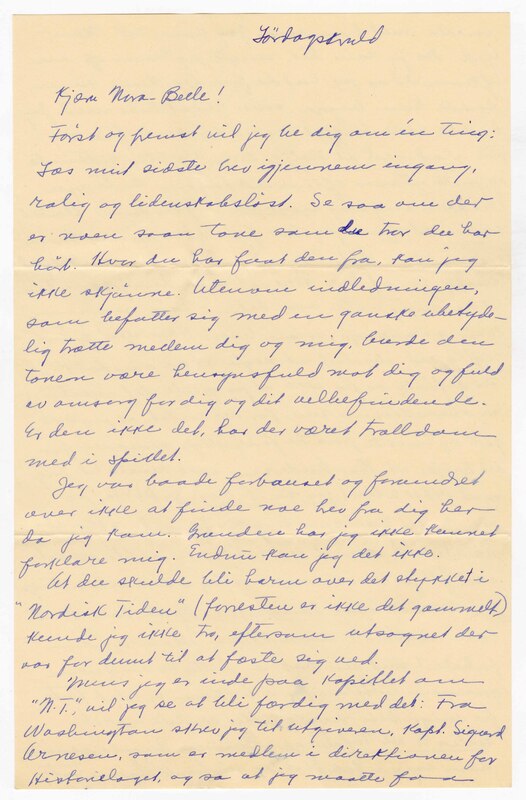 Lördagskveld
Kjære Nora-Belle!
Först og fremst vil jeg be dig om én ting:
Læs mit sidste brev igjennem engang,
rolig og lidenskabslöst. Se saa om der
er noen saan tone som du tror du har
hört. Hvor du har faat den fra, kan jeg
ikke skjönne. Utenom indledningen,
som befatter sig med en ganske ubetyde-
lig trætte mellem dig og mig, burde den
tonen være hensynsfuld mot dig og fuld
av omsorg for dig og dit velbefindende.
Er den ikke det, har der været trolldom
med i spillet.
Jeg var baade forbauset og forundret
over ikke at finde noe brev fra dig her
da jeg kom. Grunden har jeg ikke kunnet
forklare mig. Endnu kan jeg det ikke.
At du skulde bli harm over det stykket i
"Nordisk Tiden" (forresten er ikke det gammelt)
kunde jeg ikke tro, eftersom utsagnet der
var for dumt til at fæste sig ved.
Mens jeg er inde paa kapitlet om
"N.T.", vil jeg se at bli færdig med det: Fra
Washington skrev jeg til utgiveren, Kapt. Sigurd
Arnesen, som er medlem i direktionen for
Historielaget, og sa at jeg maatte faa